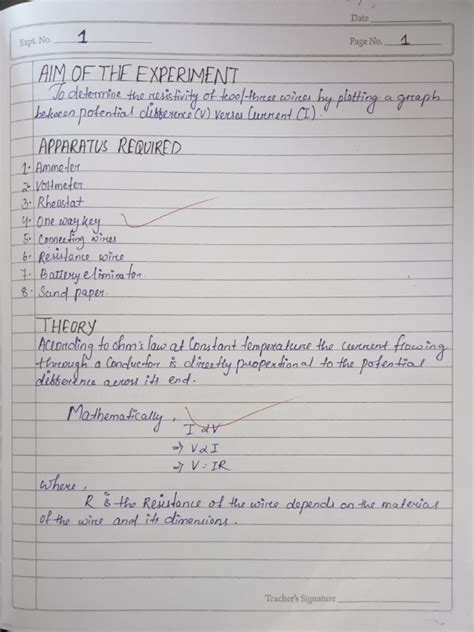 Date
Expt. No. 1
Page No. 1
AIM OF THE EXPERIMENT
To determine the resistivity of two/three wires by plotting a graph
between potential difference (V) verses Current (I).
APPARATUS REQUIRED
1. Ammeter
2. Voltmeter
3. Rheostat
4. One way key
5. Connecting wires
6. Resistance wire
7. Battery eliminator.
8. Sand paper.
THEORY
According to ohm's law at Constant temperature the current flowing
through a Conductor is directly propertional to the potential
difference across its end.
Mathematically,
I α V
⇒ V α I
⇒ V = IR
where,
R is the Resistance of the wire depends on the material
of the wire and its dimensions.
Teacher's Signature